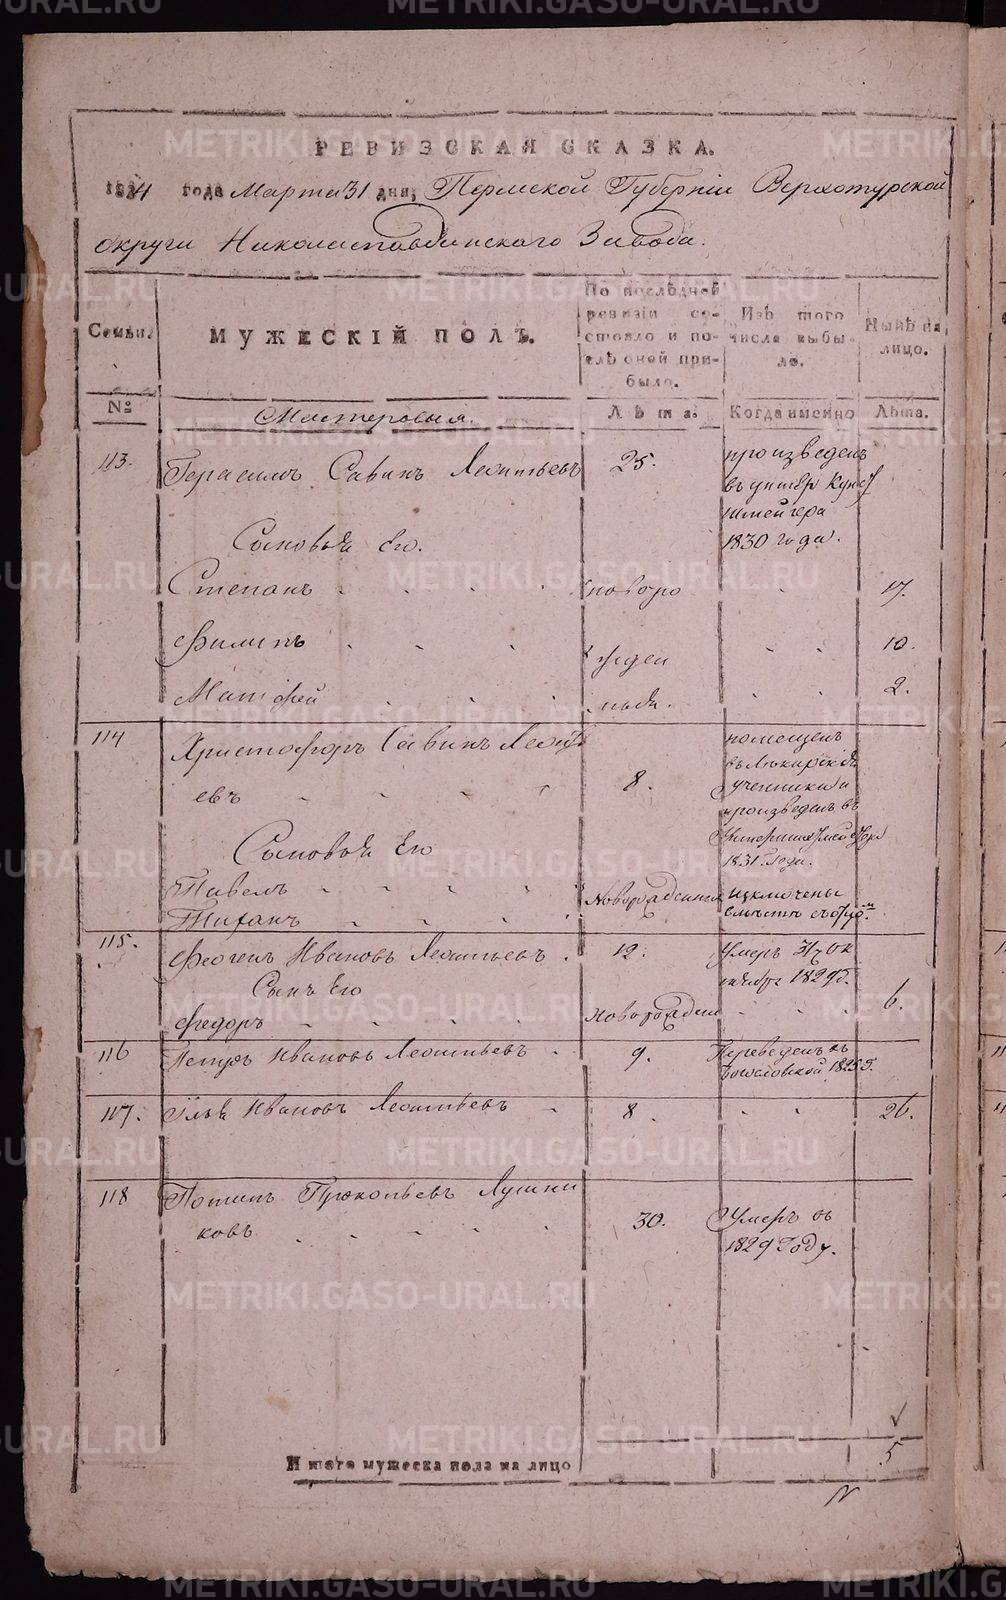 РЕВИЗСКАЯ СКАЗКА.
1834 года Марта 31 дня, Пермской Губернiи Верхотурской
округи Николаепавдинскаго Завода.
Семьи. МУЖЕСКIЙ ПОЛЪ. По послѣдней ревизiи состояло и послѣ оной прибыло. Изъ того числа выбыло. Нынѣ на лицо.
№ Мастеровыя. Лѣта. Когда именно Лѣта.
113. Герасимъ Савинъ Леонтьевъ 25. произведенъ
въ унтеръ
шмейгера
1830 года.
Сыновья Его.
Степанъ новоро 17.
Филипъ жден 10.
Матфей ныя. 2.
114 Христофоръ Савинъ Леонть помещенъ
евъ 8. въ Лѣкарскiя
ученики и
произведенъ въ
Сыновья Его
1831 Года.
Павелъ Новорожденныя изключены
вмѣстѣ съ отцомъ
115. Иванов Леонтьевъ. 12. Умеръ 31го Ок
Сынъ Его тября 1829 г.
Федоръ Новорожден 6.
116 Петръ Ивановъ Леонтьевъ 9. Переведенъ въ
Богословской 1825 г.
117. Илья Ивановъ Леонтьевъ 8. 26.
118 Потапъ Прокопьевъ Лушни
ковъ 30. Умеръ въ
1829 Году.
Итого мужеска пола на лицо 5
METRIKI.GASO-URAL.RU